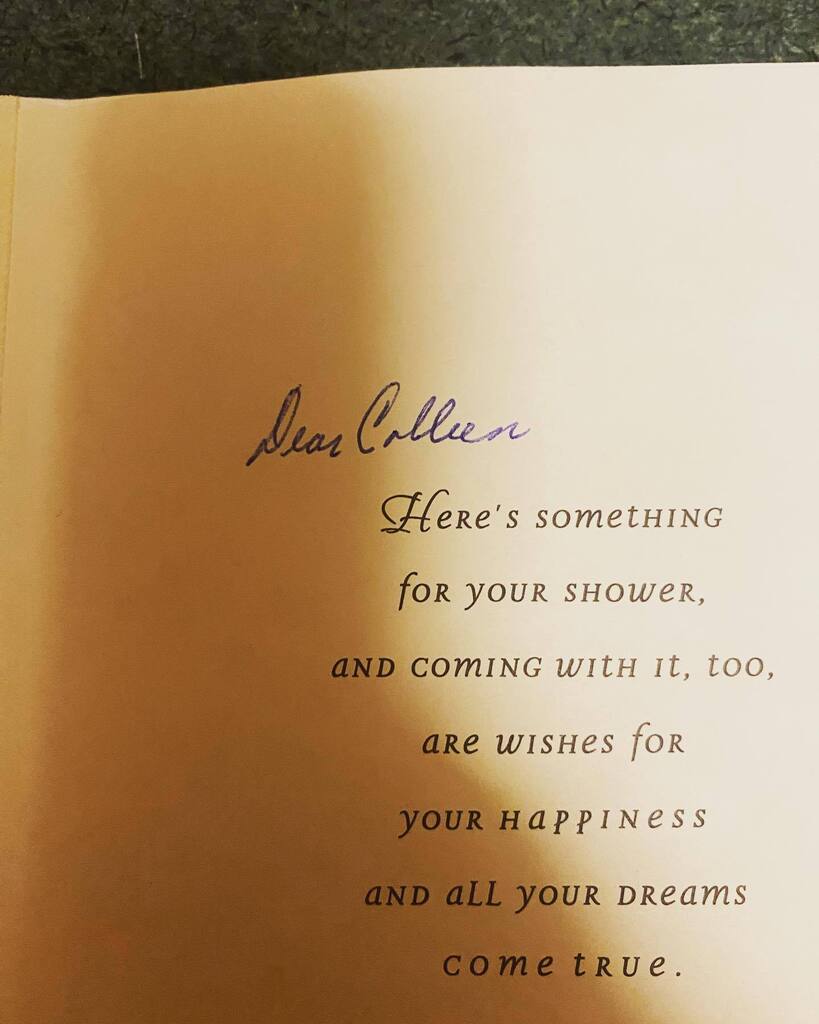 Dear Colleen
Here's something
for your shower,
and coming with it, too,
are wishes for
your happiness
and all your dreams
come true.